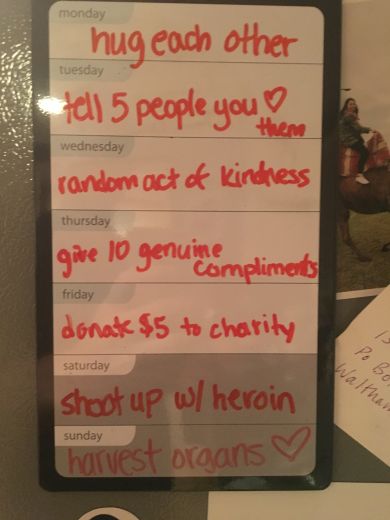 monday
hug each other
tuesday
tell 5 people you ♡
them
wednesday
random act of kindness
thursday
give 10 genuine
compliments
friday
donate $5 to charity
saturday
shoot up w/ heroin
sunday
harvest organs ♡
Po Bo
Waltha